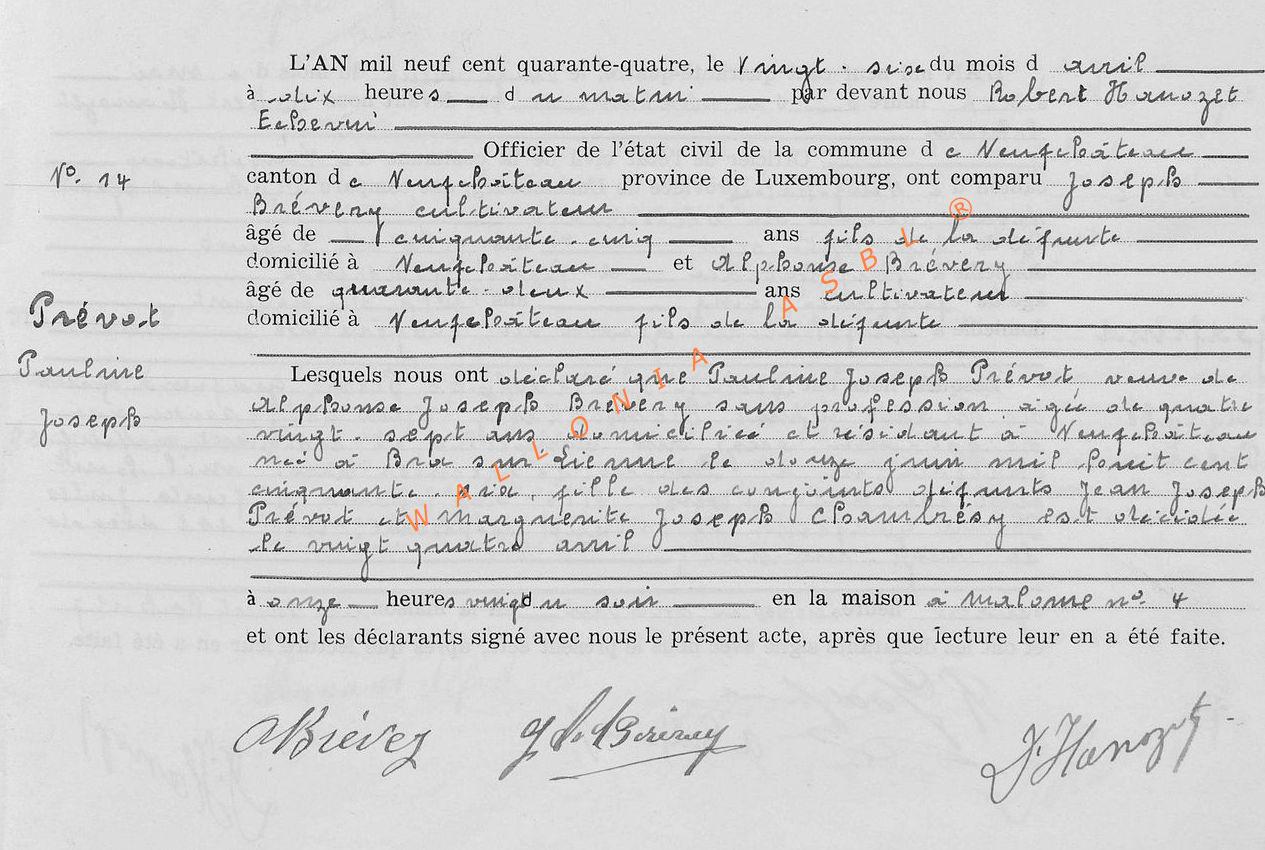 L'AN mil neuf cent quarante-quatre, le Vingt-six du mois d avril
à dix heures du matin par devant nous Robert Hanozet
Echevin
Officier de l'état civil de la commune de Neufchâteau
N°. 14
canton de Neufchâteau province de Luxembourg, ont comparu Joseph
Brévery cultivateur
âgé de cinquante-cinq ans fils de la défunte
domicilié à Neufchâteau et Alphonse Brévery
âgé de quarante-deux ans cultivateur
Prévot
domicilié à Neufchâteau fils de la défunte
Pauline
Lesquels nous ont déclaré que Pauline Joseph Prévot veuve de
Joseph
Alphonse Joseph Brévery sans profession agée de quatre
vingt-sept ans domiciliée et résidant à Neufchâteau
née à Bra sur Lienne le douze juin mil huit cent
cinquante-six, fille des conjoints défunts Jean Joseph
Prévot et Marguerite Joseph Chambrésy est décédée
le vingt quatre avril
à onze heures vingt du soir en la maison à Malome n°. 4
et ont les déclarants signé avec nous le présent acte, après que lecture leur en a été faite.
WALLONIA ASBL ®